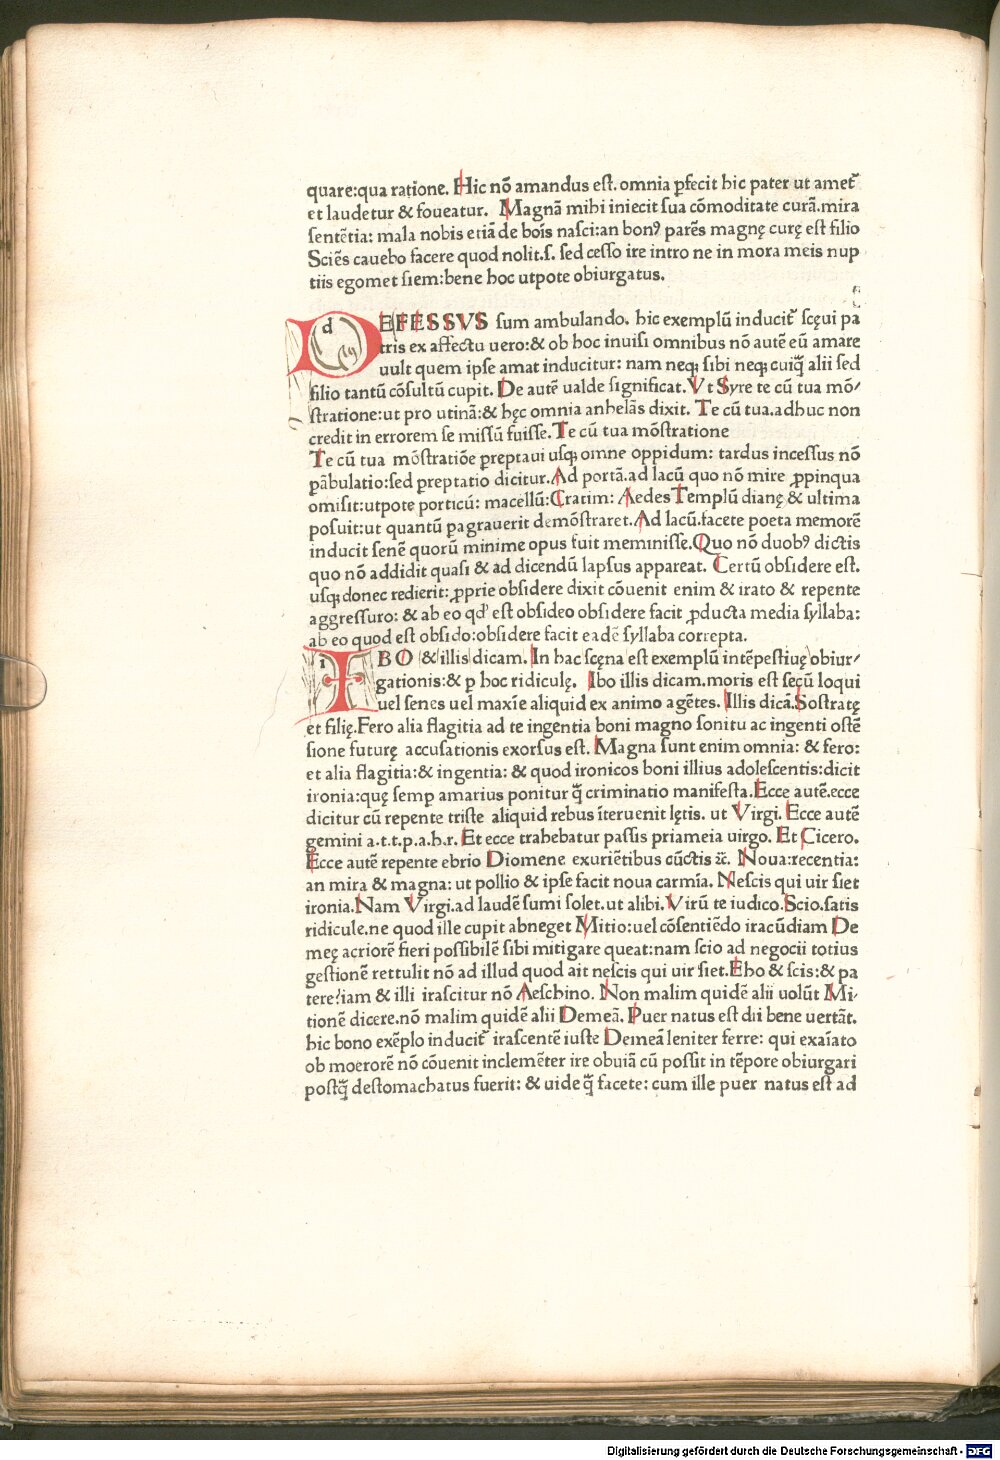 quare:qua ratione. Hic nō amandus eſt. omnia ꝑfecit hic pater ut amet᷑
et laudetur & foueatur. Magnā mihi iniecit ſua cōmoditate curā.mira
ſentētia: mala nobis etiā de bois naſci:an bonꝰ parēs magnę curę eſt filio
Sciēs cauebo facere quod nolit.ſ. ſed ceſſo ire intro ne in mora meis nup
tiis egomet ſiem:bene hoc utpote obiurgatus.
DEFESSVS ſum ambulando. hic exemplū inducit᷑ ſęui pa
tris ex affectu uero:& ob hoc inuiſi omnibus nō autē eū amare
uult quem ipſe amat inducitur: nam neqꝫ ſibi neqꝫ cuiq̄ alii ſed
filio tantū cōſultū cupit. De autē ualde ſignificat. Vt Syre te cū tua mō/
ſtratione:ut pro utinā:& hęc omnia anhelās dixit. Te cū tua.adhuc non
credit in errorem ſe miſſū fuiſſe. Te cū tua mōſtratione
Te cū tua mōſtratiōe ꝑreptaui uſqꝫ omne oppidum: tardus inceſſus nō
ꝑābulatio:ſed ꝑreptatio dicitur. Ad portā.ad lacū quo nō mire ꝓpinqua
omiſit:utpote porticū: macellū:Cratim: Aedes Templū dianę & ultima
poſuit:ut quantū pagrauerit demōſtraret. Ad lacū.facete poeta memorē
inducit ſenē quorū minime opus fuit meminiſſe. Quo nō duobꝰ dictis
quo nō addidit quaſi & ad dicendū lapſus appareat. Certū obſidere eſt.
uſqꝫ donec redierit: ꝓprie obſidere dixit cōuenit enim & irato & repente
aggreſſuro: & ab eo qd' eſt obſideo obſidere facit ꝓducta media ſyllaba:
ab eo quod eſt obſido:obſidere facit eadē ſyllaba correpta.
IBO & illis dicam. In hac ſcęna eſt exemplū intēpeſtiuę obiur/
gationis:& ꝑ hoc ridiculę. Ibo illis dicam.moris eſt ſeçū loqui
uel ſenes uel maxīe aliquid ex animo agētes. Illis dicā.Soſtratę
et filię.Fero alia flagitia ad te ingentia boni magno ſonitu ac ingenti oſtē
ſione futurę accuſationis exorſus eſt. Magna ſunt enim omnia: & fero:
et alia flagitia:& ingentia: & quod ironicos boni illius adoleſcentis:dicit
ironia:quę ſemꝑ amarius ponitur q̄ criminatio manifeſta.Ecce autē.ecce
dicitur cū repente triſte aliquid rebus īteruenit lętis. ut Virgi. Ecce autē
gemini a.t.t.p.a.h.r. Et ecce trahebatur paſſis priameia uirgo. Et Cicero.
Ecce autē repente ebrio Diomene exuriētibus cūctis ⁊c̄. Noua:recentia:
an mira & magna: ut pollio & ipſe facit noua carmīa. Neſcis qui uir ſiet
ironia.Nam Virgi.ad laudē ſumi ſolet.ut alibi.Virū te iudico.Scio.ſatis
ridicule.ne quod ille cupit abneget Mitio:uel cōſentiēdo iracūdiam De
meę acriorē fieri poſſibilē ſibi mitigare queat:nam ſcio ad negocii totius
geſtionē rettulit nō ad illud quod ait neſcis qui uir ſiet.Eho & ſcis:& pa
tere?iam & illi iraſcitur nō Aeſchino. Non malim quidē alii uolūt Mi/
tionē dicere.nō malim quidē alii Demeā. Puer natus eſt dii bene uertāt.
hic bono exēplo inducit᷑ iraſcentē iuſte Demeā leniter ferre: qui exaīato
ob moerorē nō cōuenit inclemēter ire obuiā cū poſſit in tēpore obiurgari
poſtq̄ deſtomachatus fuerit: & uide q̄ facete: cum ille puer natus eſt ad
Digitalisierung gefördert durch die Deutsche Forschungsgemeinschaft - DFG